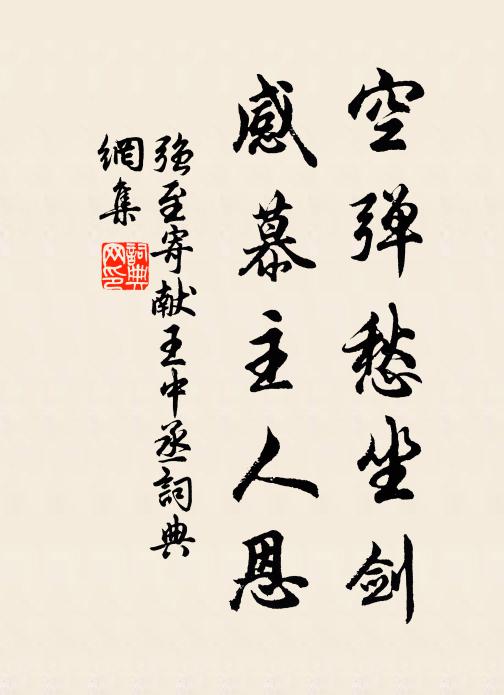 空弹愁坐剑
感慕主人恩
强至寄献王中丞词典
網集
詞典网印